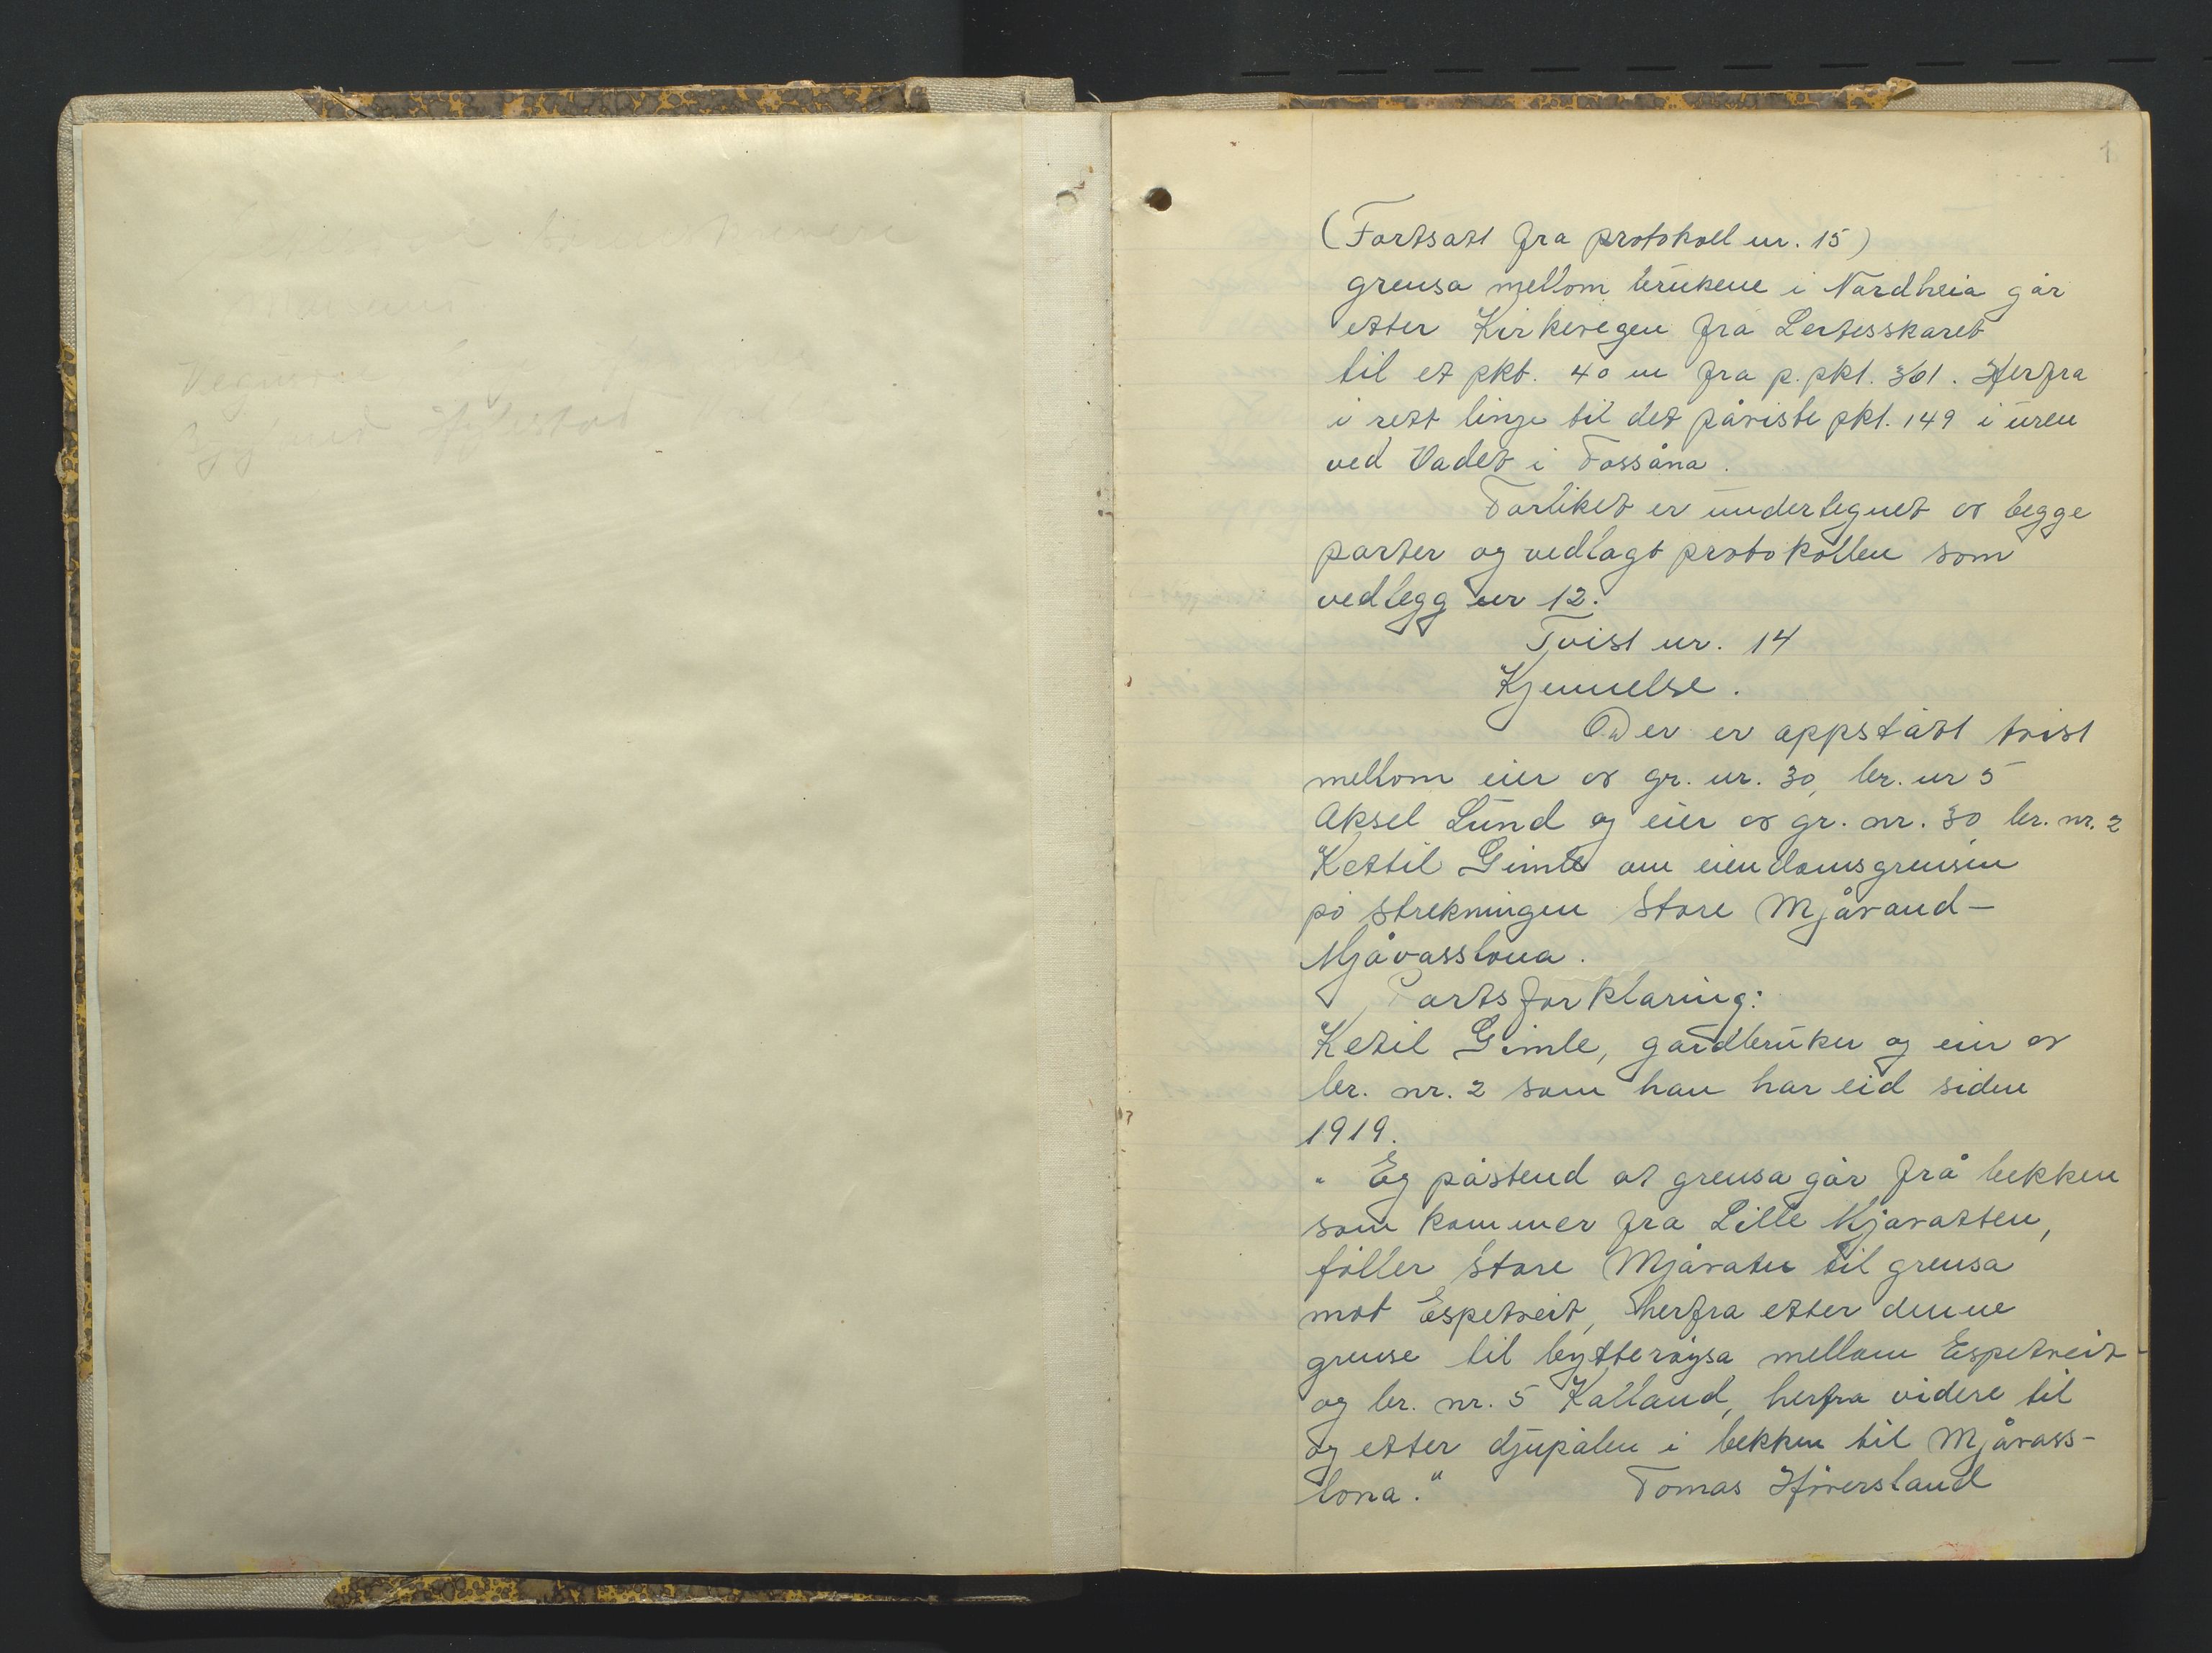 1
(Fortsatt fra protokoll nr. 15)
grensa mellom brukene i Nordheia går
etter Kirkevegen fra Lertesskaret
til et pkt. 40 m fra p.pkt. 361. Herfra
i rett linje til det påviste pkt. 149 i uren
ved Vadet i Fossåna.
Forliket er undertegnet av begge
parter og vedlagt protokollen som
vedlegg nr 12.
Tvist nr. 14
Kjennelse.
Der er oppstått tvist
mellom eier av gr. nr. 30, br. nr 5
Aksel Lund og eier av gr. nr. 30 br. nr. 2
Kettil Gimle om eiendomsgrensen
på strekningen Store Mjåvand-
Mjåvasslona.
Partsforklaring:
Ketil Gimle, gårdbruker og eier av
br. nr. 2 som han har eid siden
1919.
" Eg påstend at grensa går frå bekken
som kommer fra Lille Mjavatten,
föller Store Mjåvatn til grensa
mot Espetveit, herfra etter denne
grense til bytteröysa mellom Espetveit-
og br. nr. 5 Kalland, herfra videre til
og etter djupålen i bekken til Mjåvass-
lona." Tomas Höversland